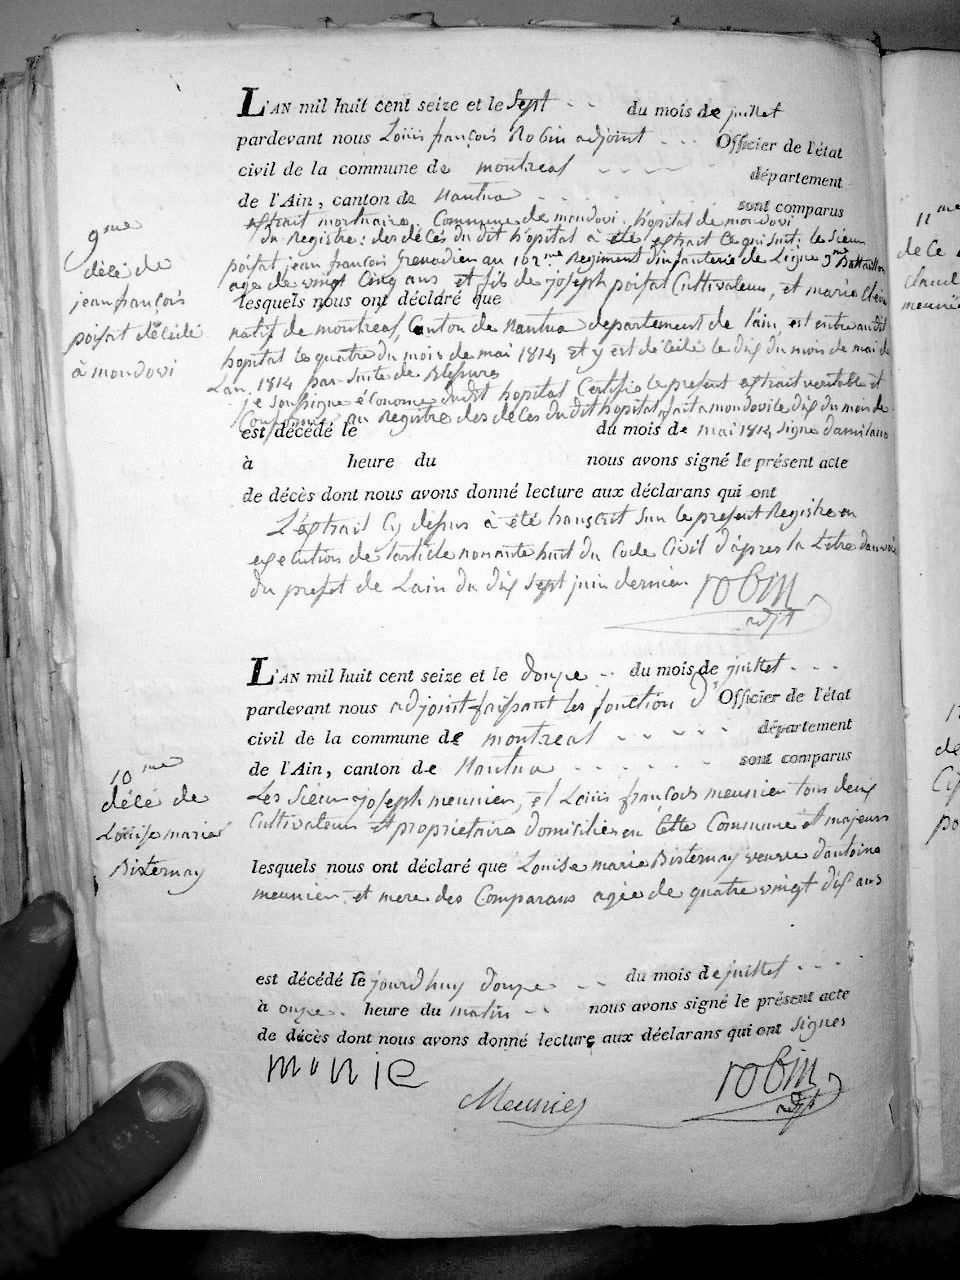 L'AN mil huit cent seize et le Sept du mois de juillet
pardevant nous Louis françois Robin adjoint Officier de l'état
civil de la commune de montreal département
de l'Ain, canton de Nantua sont comparus
extrait mortuaire, Commune de mondovi, hôpital de mondovi
du Registre des décès du dit hôpital à été extrait ce qui suit: le Sieur
poifat jean françois Grenadier au 102me Regiment d'infanterie de Ligne 3me Bataillon
age de vingt Cinq ans et fils de joseph poifat Cultivateur, et marie
lesquels nous ont déclaré que
natif de montreal, Canton de Nantua departement de l'ain, est entré au dit
hopital le quatre du mois de mai 1814 et y est décédé le dix du mois de mai de
Lan 1814 par suite de Blesure
je soussigné économe du dit hopital Certifie le present extrait veritable et
Conforme au Registre des décès du dit hopital, fait a mondovi le dix du mois de
est décédé le du mois de mai 1814 signé damilano
à heure du nous avons signé le présent acte
de décès dont nous avons donné lecture aux déclarans qui ont
L'extrait Cy dessus à été transcrit sur le present Registre en
execution de l'article nonante huit du Code Civil d'après la Lettre d'anvoi
du prefet de Lain du dix sept juin dernier robin
adjt
9me
décé de
jean françois
poifat décédé
à mondovi
L'AN mil huit cent seize et le douze du mois de juillet
pardevant nous adjoint faissant les fonction d'Officier de l'état
civil de la commune de montreal département
de l'Ain, canton de Nantua sont comparus
Les Sieur joseph meunier, et Louis françois meunier tous deux
Cultivateurs et propriétaire domicilies en Cette Commune et majeurs
lesquels nous ont déclaré que Louise marie Bisternay veuve d'antoine
meunier et mere des Comparans agée de quatre vingt dix ans
est décédé le jourdhuy douze du mois de juillet
à onze heure du matin nous avons signé le présent acte
de décès dont nous avons donné lecture aux déclarans qui ont signés
monie
Meunier
robin
adjt
10me
décé de
Louise marie
Bisternay
11me
de ce
Claud
meunie